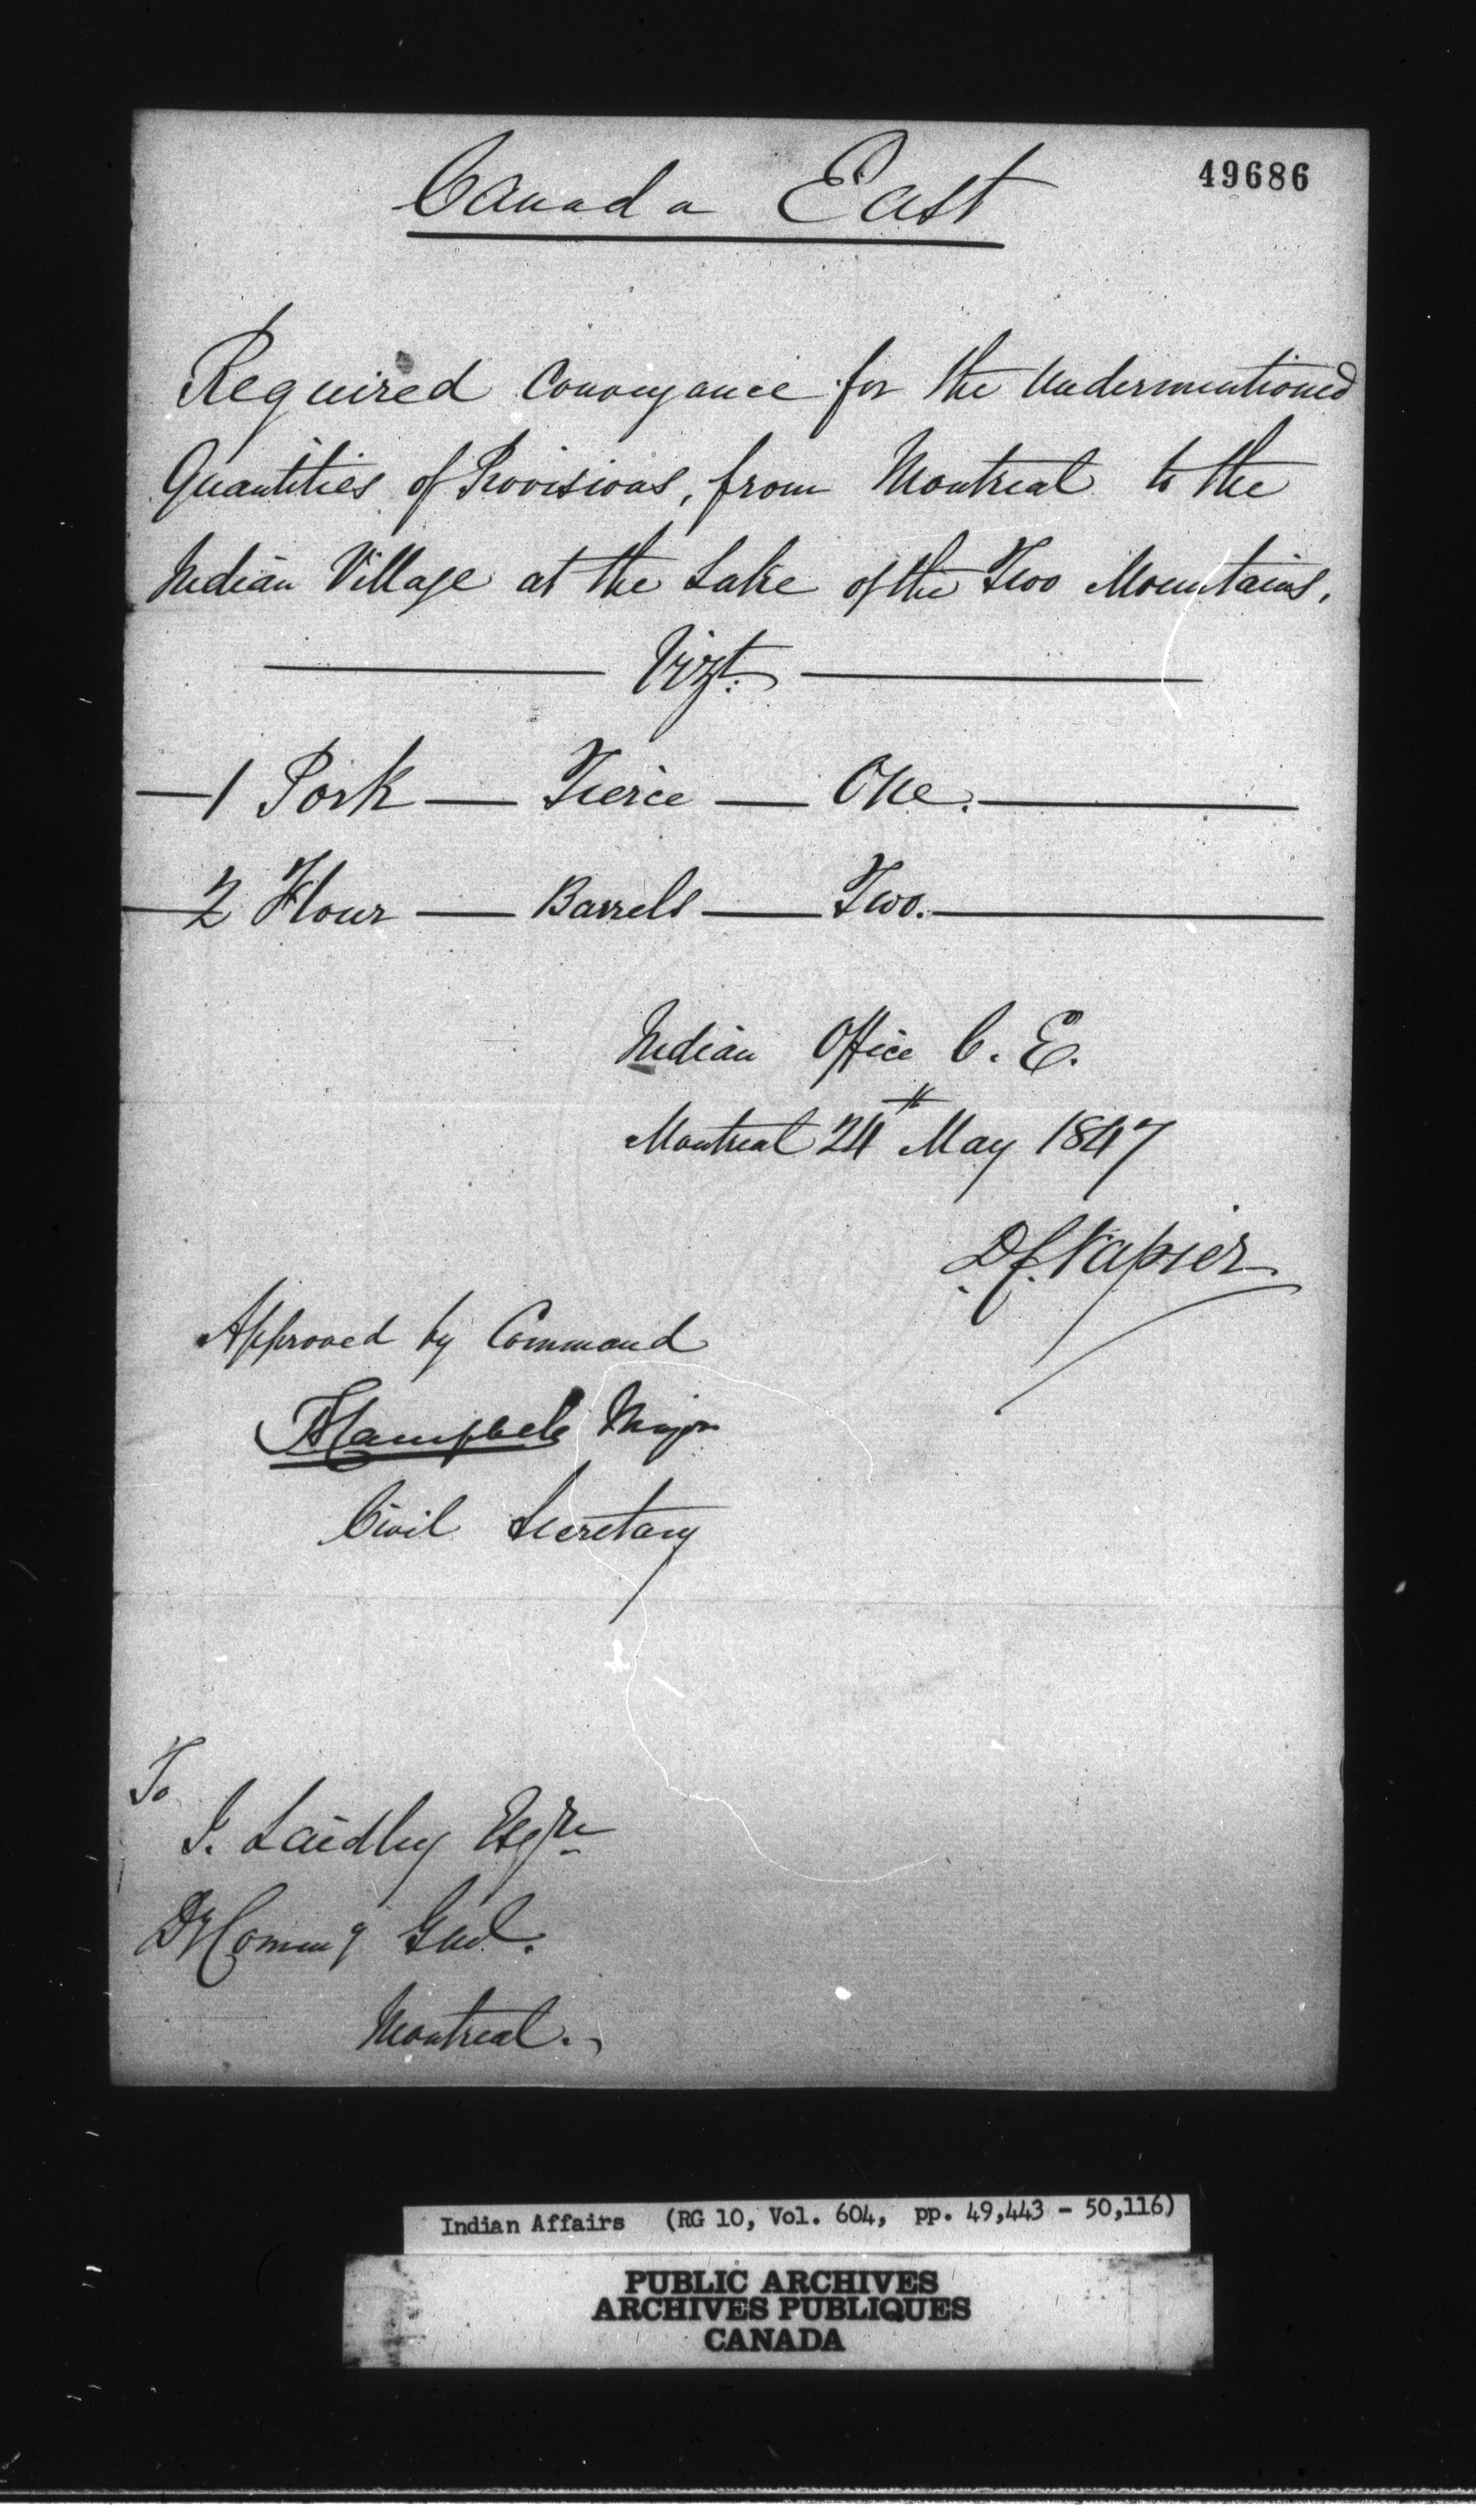 Canada East
49686
Required Conveyance for the Undermentioned
Quantities of Provisions, from Montreal to the
Indian Village at the Lake of the Two Mountains,
Vizt.
1 Pork — Tierce — One.
2 Flour — Barrels — Two.
Indian Office C. E.
Montreal 24th May 1847
D C Napier
Approved by Command
Campbell Major
Civil Secretary
To
J. Laidley Esqre
Dy Commy Genl.
Montreal.
Indian Affairs (RG 10, Vol. 604, pp. 49,443 - 50,116)
PUBLIC ARCHIVES
ARCHIVES PUBLIQUES
CANADA